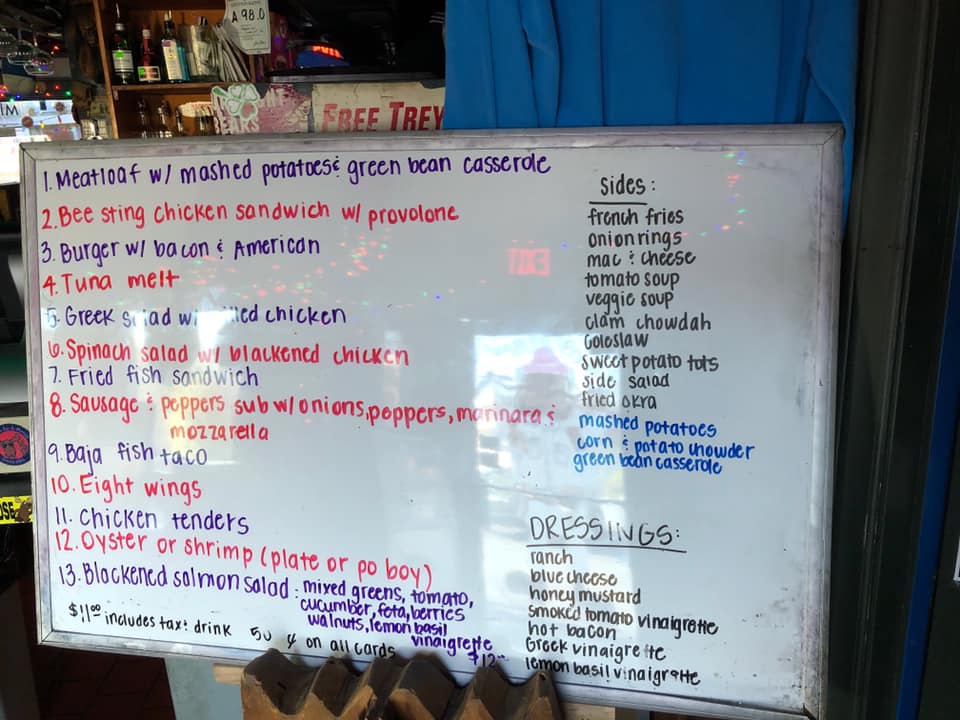 A 98.0
FREE TREY
1. Meatloaf w/ mashed potatoes & green bean casserole
2. Bee sting chicken sandwich w/ provolone
3. Burger w/ bacon & American
4. Tuna melt
5. Greek salad w/ chicken
6. Spinach salad w/ blackened chicken
7. Fried fish sandwich
8. Sausage & peppers sub w/ onions, peppers, marinara &
mozzarella
9. Baja fish taco
10. Eight wings
11. Chicken tenders
12. Oyster or shrimp (plate or po boy)
13. Blackened salmon salad: mixed greens, tomato,
cucumber, feta, berries
walnuts, lemon basil
vinaigrette
$12.00
$11.00 includes tax & drink
50 ¢ on all cards
Sides:
french fries
onion rings
mac & cheese
tomato soup
veggie soup
clam chowdah
Coleslaw
sweet potato tots
side salad
fried okra
mashed potatoes
corn & potato chowder
green bean casserole
DRESSINGS:
ranch
blue cheese
honey mustard
smoked tomato vinaigrette
hot bacon
Greek vinaigrette
lemon basil vinaigrette